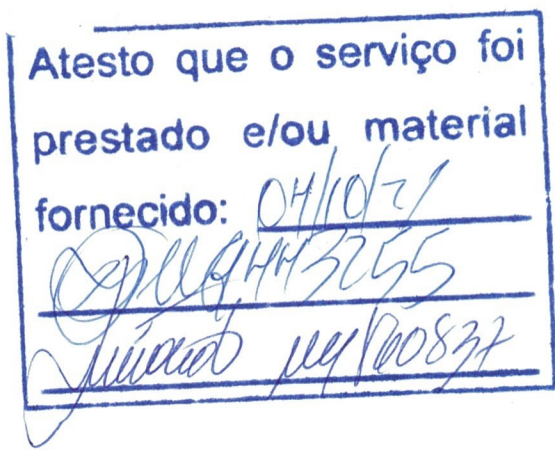 Atesto que o serviço foi
prestado e/ou material
fornecido: 04/10/21
443255
160837